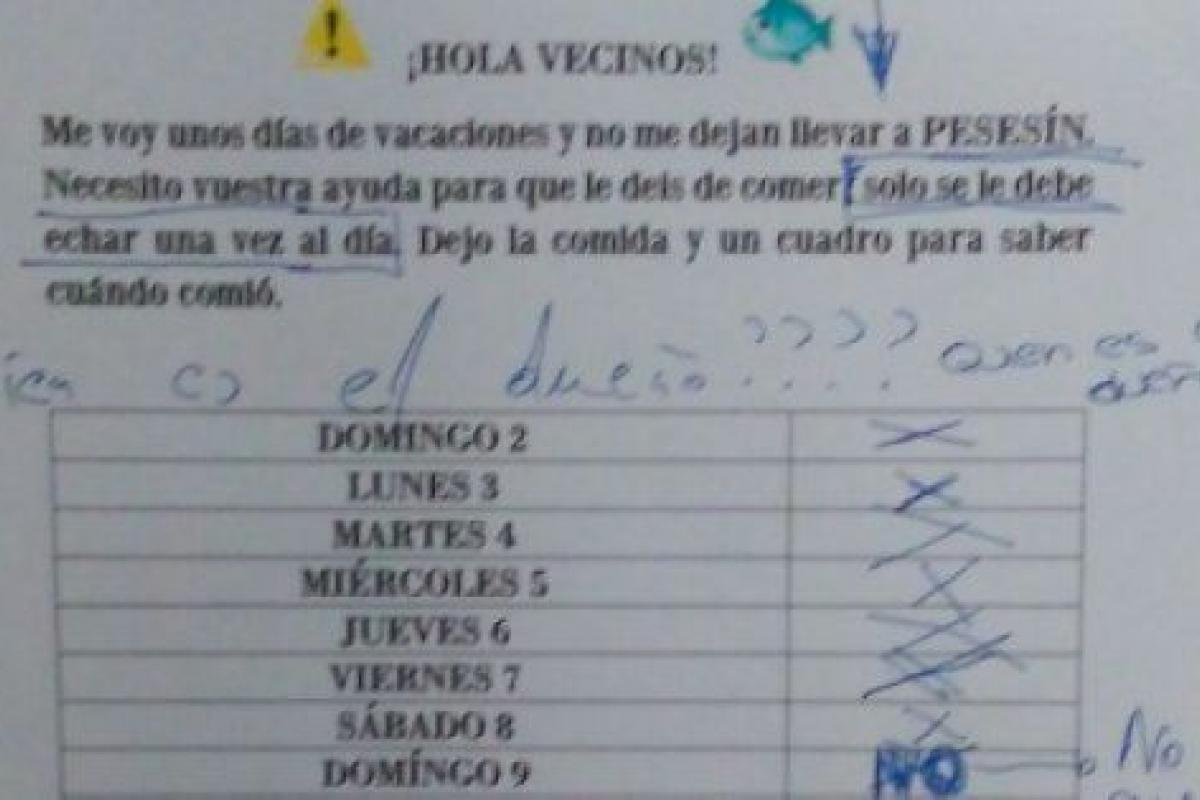 ¡HOLA VECINOS!
Me voy unos días de vacaciones y no me dejan llevar a PESESÍN.
Necesito vuestra ayuda para que le deis de comer, solo se le debe
echar una vez al día. Dejo la comida y un cuadro para saber
cuándo comió.
es el dueño ????
Quien es
DOMINGO 2 X
LUNES 3 X
MARTES 4 X
MIÉRCOLES 5 X
JUEVES 6 X
VIERNES 7 X
SÁBADO 8 X
DOMÍNGO 9 NO
No